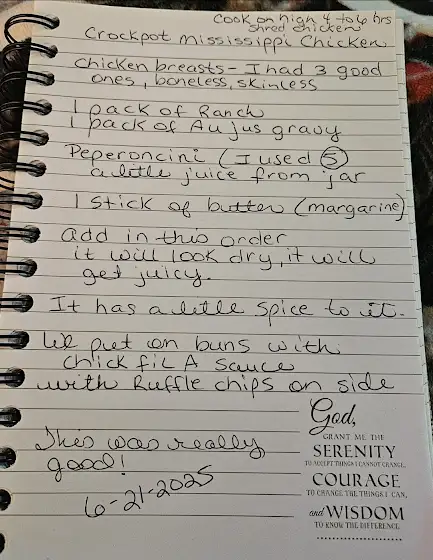 Cook on high 4 to 6 hrs
shred chicken
Crockpot Mississippi Chicken
Chicken breasts - I had 3 good
ones, boneless, skinless
1 pack of Ranch
1 pack of Au jus gravy
Peperoncini (I used 5)
a little juice from jar
1 stick of butter (margarine)
add in this order
it will look dry, it will
get juicy.
It has a little spice to it.
We put on buns with
Chick fil A sauce
with Ruffle chips on side
This was really
good!
6-21-2025
God,
GRANT ME THE
SERENITY
TO ACCEPT THINGS I CANNOT CHANGE,
COURAGE
TO CHANGE THE THINGS I CAN,
and WISDOM
TO KNOW THE DIFFERENCE.